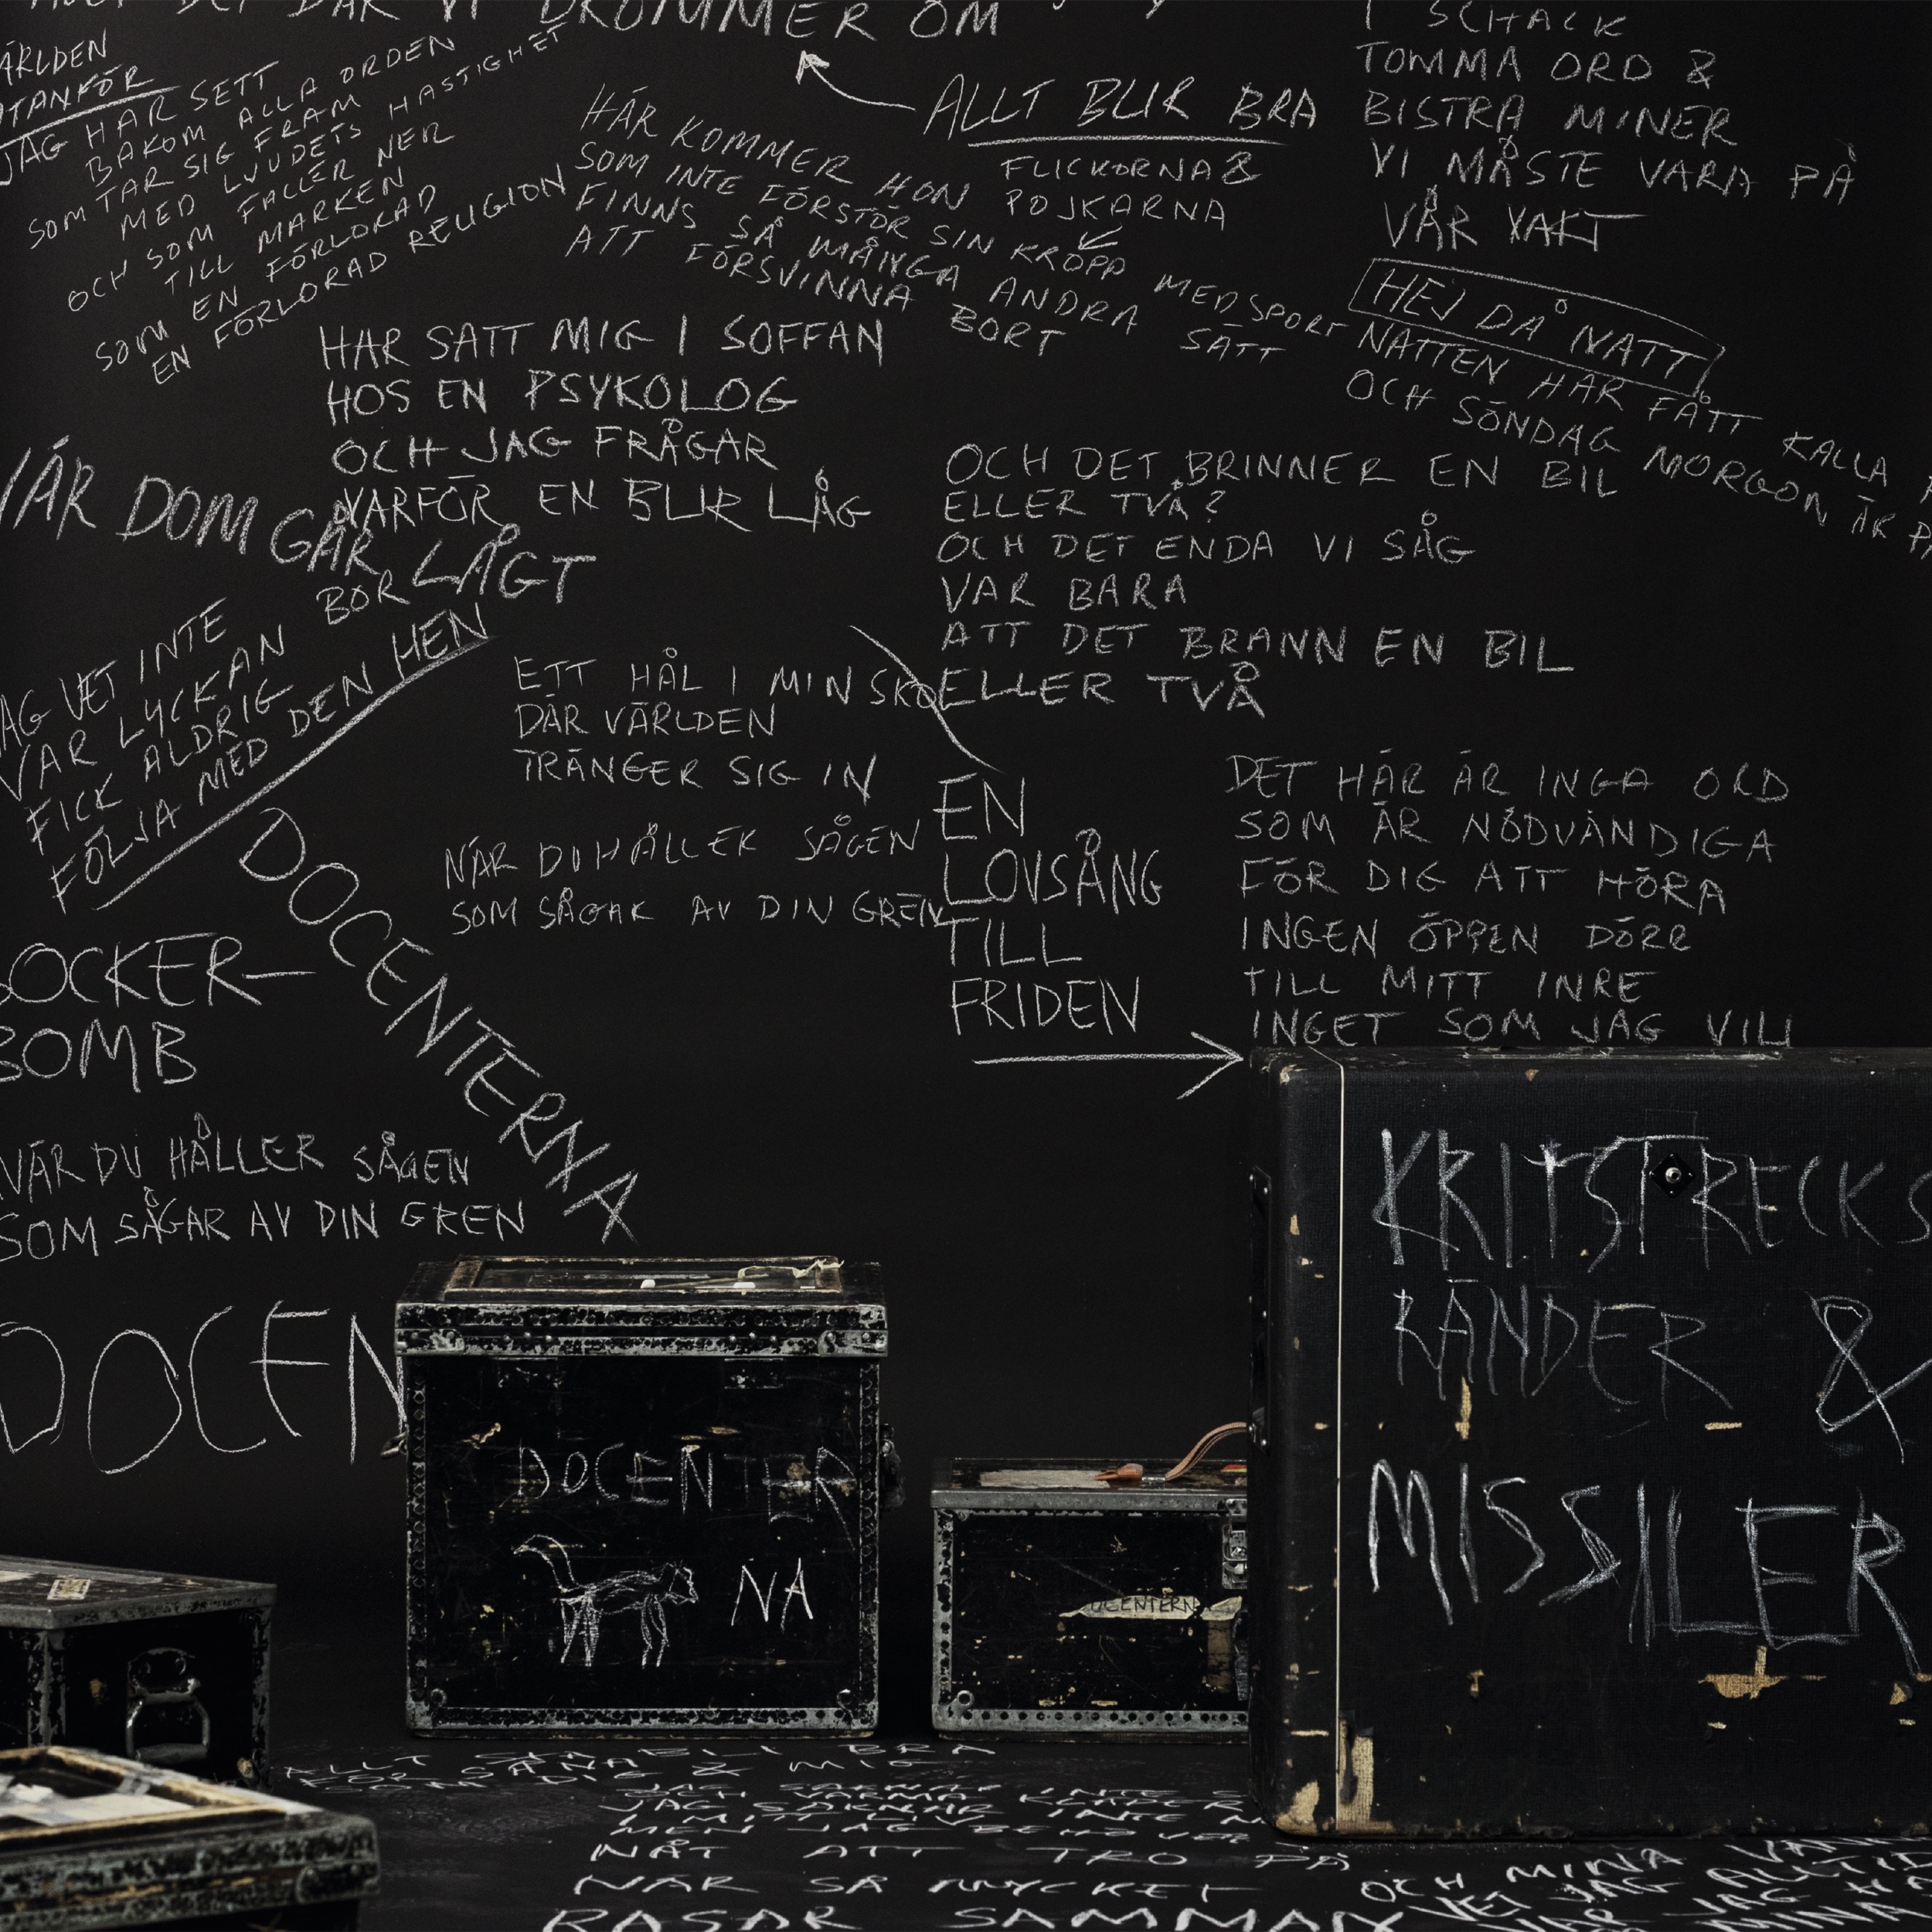 DRÖMMER OM
ÄRLDEN
JAG HAR SETT
BAKOM ALLA ORDEN
SOM TAR SIG FRAM
MED LJUDETS HASTIGHET
OCH SOM FALLER NER
TILL MARKEN
SOM EN FÖRLORAD
EN FÖRLORAD RELIGION
ALLT BLIR BRA
FLICKORNA &
POJKARNA
HÄR KOMMER HON
SOM INTE FÖRSTÖR SIN KROPP MED SPORT
FINNS SÅ MÅNGA ANDRA SÄTT
ATT FÖRSVINNA BORT
I SCHACK
TOMMA ORD &
BISTRA MINER
VI MÅSTE VARA PÅ
VÅR VAKT
HEJ DÅ NATT
NATTEN HAR FÅTT KALLA
OCH SÖNDAG MORGON ÄR
HAR SATT MIG I SOFFAN
HOS EN PSYKOLOG
OCH JAG FRÅGAR
VARFÖR EN BLIR LÅG
DOM GÅR LÅGT
VET INTE
VAR LYCKAN BOR
FICK ALDRIG
FÖLJA MED DEN HEN
OCH DET BRINNER EN BIL
ELLER TVÅ?
OCH DET ENDA VI SÅG
VAR BARA
ATT DET BRANN EN BIL
ELLER TVÅ
ETT HÅL I MIN SKO
DÄR VÄRLDEN
TRÄNGER SIG IN
NÄR DU HÅLLER SÅGEN
SOM SÅGAR AV DIN GREN
EN
LOVSÅNG
TILL
FRIDEN
DET HÄR ÄR INGA ORD
SOM ÄR NÖDVÄNDIGA
FÖR DIG ATT HÖRA
INGEN ÖPPEN DÖRR
TILL MITT INRE
INGET SOM JAG VILL
DOCENTERNA
OCKER-
BOMB
NÄR DU HÅLLER SÅGEN
SOM SÅGAR AV DIN GREN
DOCEN
DOCENTER
NA
DOCENTERN
KRITSTRECKS
RÄNDER &
MISSILER
ALLT BLI BRA
DIG & MIG
NÅT ATT TRO PÅ
NÄR SÅ MYCKET
RASAR SAMMAN
OCH MINA
VET JAG ALLTID